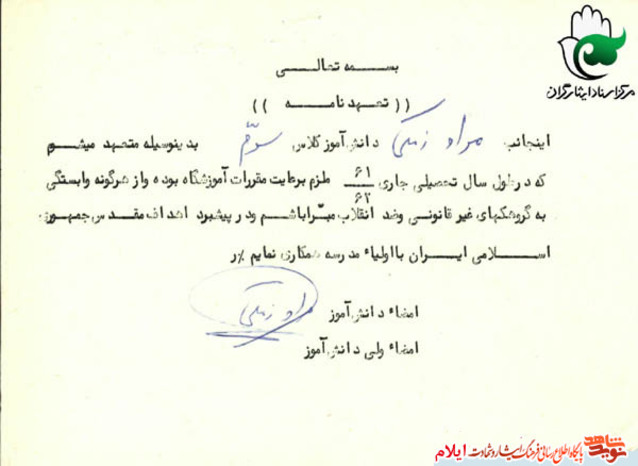 مرکز اسناد ایثارگران
بسمه تعالی
(( تعهد نامه ))
اینجانب مراد زنگی دانش‌آموز کلاس سوّم بدینوسیله متعهد میشوم
که در طول سال تحصیلی جاری ۶۱/۶۲ ملزم برعایت مقررات آموزشگاه بوده و از هرگونه وابستگی
به گروهکهای غیر قانونی و ضد انقلاب مبّرا باشم و در پیشبرد اهداف مقدس جمهوری
اسلامی ایران با اولیاء مدرسه همکاری نمایم ٪ر
امضاء دانش‌آموز مراد زنگی
امضاء ولی دانش‌آموز
نوید شاهد پایگاه اطلاع رسانی فرهنگ ایثار و شهادت ایلام